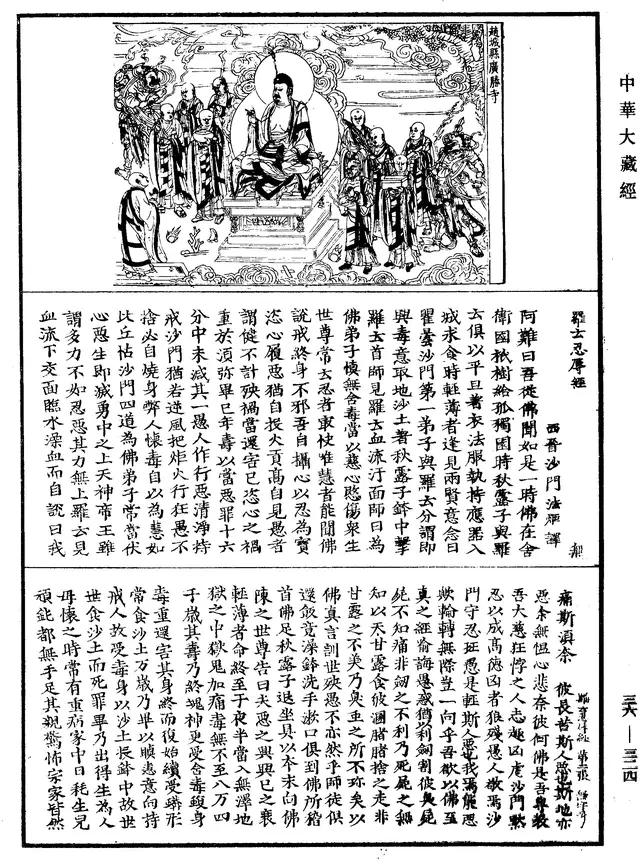 中華大藏經
趙城縣廣勝寺
羅云忍辱經
西晉沙門法炬譯
阿難曰吾從佛聞如是一時佛在舍
衛國祇樹給孤獨園時秋露子與羅
云俱以平旦著衣法服執持應器入
城求食時輕薄者逢見兩賢意念曰
瞿曇沙門第一弟子與羅云分謂即
興毒意取地沙土著秋露子鉢中擊
羅云首師見羅云血流汙面師曰為
佛弟子慎無含毒當以慈心愍傷衆生
世尊常云忍者最快唯慧者能聞佛
說戒終身不邪吾自攝心以忍為寶
恣心履惡猶自投火貢高自見愚者
謂健不計殃禍當還害已恣心之禍
重於湏弥畢已年壽以當惡罪十六
分中未減其一愚人作行惡清淨持
戒沙門猶若逆風把炬火行狂愚不
捨必自燒身弊人懷毒自以為慧如
比丘怙沙門四道為佛弟子常當伏
心惡生即滅勇中之上天神帝王雖
謂多力不如忍惡其力無上羅云見
血流下交面臨水澡血而自說曰我
痛斯湏奈彼長苦斯人惡也斯地亦
惡余無慍心悲奈彼何佛是吾尊教
吾大慈狂悖之人志趣凶虐沙門默
忍以成高德凶者狼殘愚人敬焉沙
門守忍狂愚是輕斯人惡也我焉能惡
欺輪轉無際豈一向乎吾欲以佛至
真之經喻誨愚惑猶利劍割彼臭屍
屍不知痛非劍之不利乃死屍之無
知以天甘露食彼溷豬豬捨之走非
甘露之不美乃臭虫之所不珎矣以
佛真言訓世殃愚不亦然乎師徒俱
還飯竟澡鉢洗手漱口俱到佛所稽
首佛足秋露子退坐具以本末向佛
陳之世尊告曰夫惡之興興已之衰
輕薄者命終至于夜半當入無澤地
獄之中獄鬼加痛毒無不至八万四
千歲其壽乃終魂神更受含毒蝮身
毒重還害其身終而復始續受蝮形
常食沙土万歲乃畢以瞋恚意向持
戒人故受毒身以沙土投鉢中故世
世食沙土而死罪畢乃出得生為人
母懷之時常有重病家中日耗生兒
頑鈍都無手足其親驚怖宗家皆然
三六—三二四